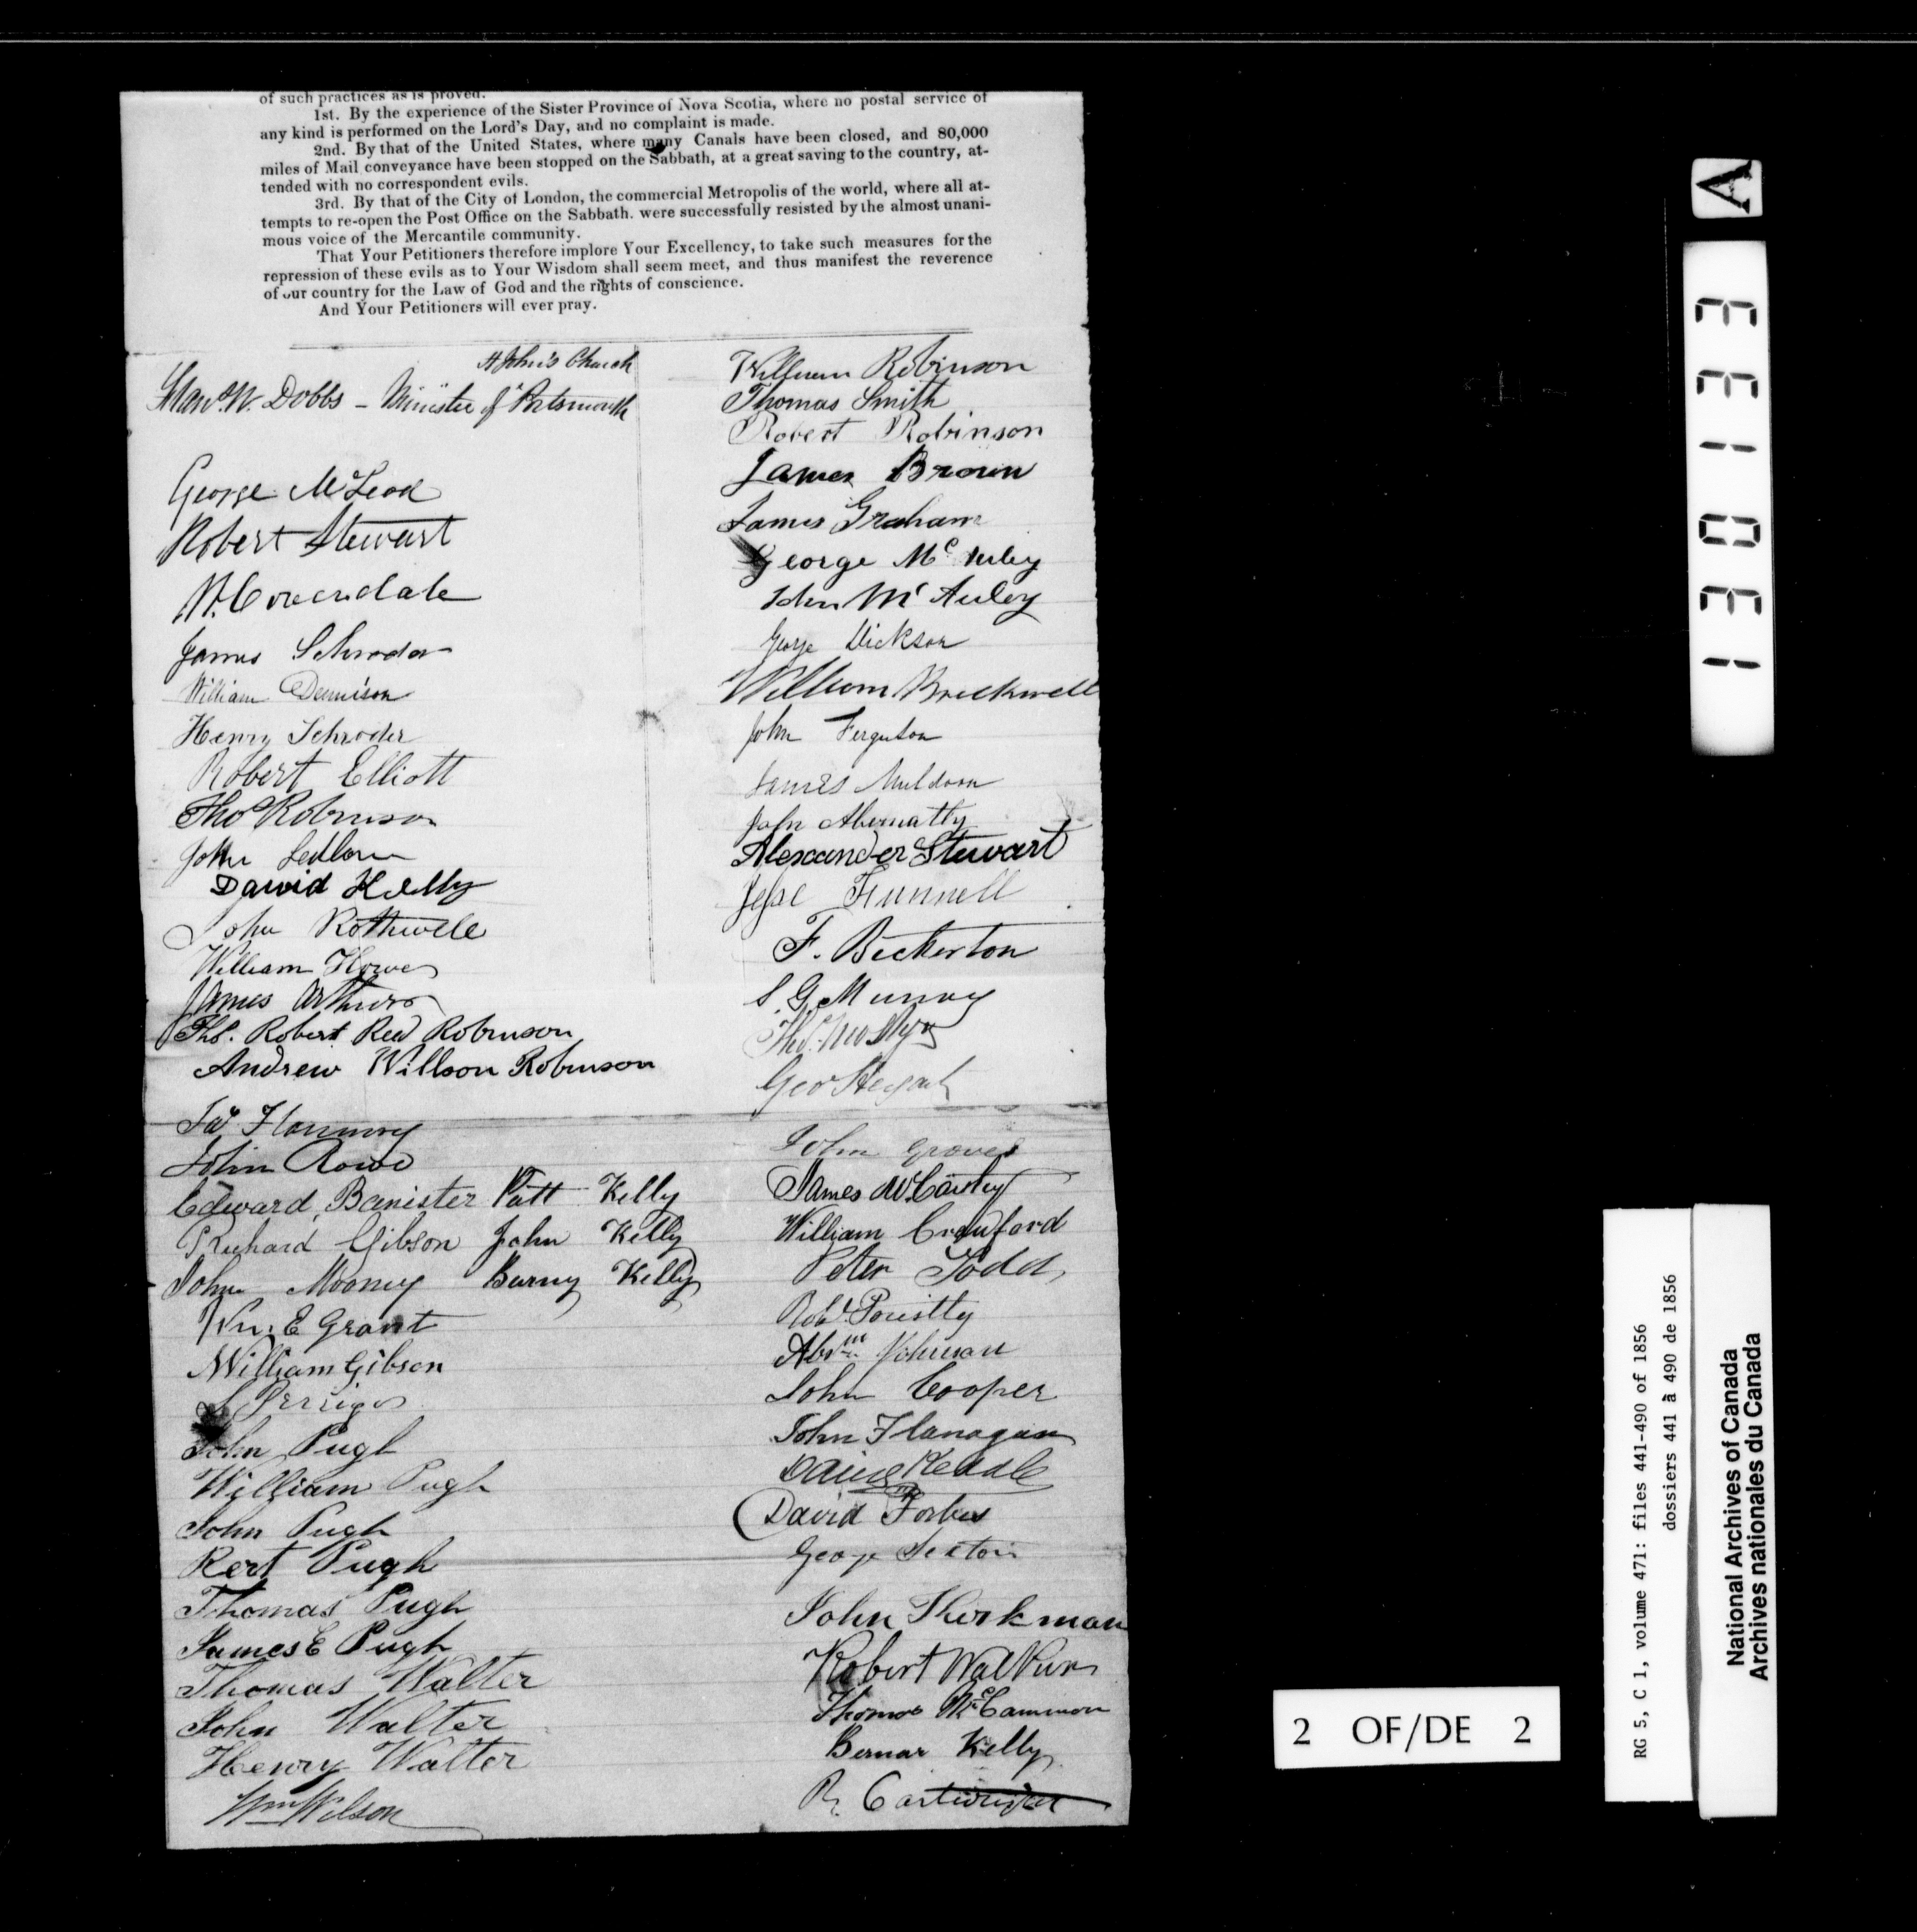 of such practices as is proved.
1st. By the experience of the Sister Province of Nova Scotia, where no postal service of
any kind is performed on the Lord's Day, and no complaint is made.
2nd. By that of the United States, where many Canals have been closed, and 80,000
miles of Mail conveyance have been stopped on the Sabbath, at a great saving to the country, at-
tended with no correspondent evils.
3rd. By that of the City of London, the commercial Metropolis of the world, where all at-
tempts to re-open the Post Office on the Sabbath. were successfully resisted by the almost unani-
mous voice of the Mercantile community.
That Your Petitioners therefore implore Your Excellency, to take such measures for the
repression of these evils as to Your Wisdom shall seem meet, and thus manifest the reverence
of our country for the Law of God and the rights of conscience.
And Your Petitioners will ever pray.
St John's Church
W. Dobbs - Minister of Portsmouth
George McLeod
Robert Stewart
W. Coverdale
James Schroder
William Dennison
Henry Schroder
Robert Elliott
Tho Robinson
John
David Kelly
John Rothwell
William Howe
James Arthurs
Tho. Robert Reed Robinson
Andrew Willson Robinson
Jas Flannory
John Rowe
Edward Banister Patt Kelly
Richard Gibson John Kelly
John Mooney Barny Kelly
Wm. E Grant
William Gibson
John Pugh
William Pugh
John Pugh
Rert Pugh
Thomas Pugh
James E Pugh
Thomas Walter
John Walter
Henry Walter
Wm Wilson
William Robinson
Thomas Smith
Robert Robinson
James Brown
James Graham
George Mc Auley
John Mc Auley
George Dickson
William Brickwell
John Ferguson
James Muldoon
John Abernatty
Alexander Stewart
Jesse Funnell
F. Bickerton
S. G. Murray
Geo
John Groves
James McCauley
William Crawford
Peter Todd
Robt
Abrm Johnson
John Cooper
John Flanagan
David Keadle
David Forbes
George Sexton
John Therkman
Robert Walkur
Thomas McCammon
Bernar Kelly
R. Cartwright
A
EE10E1
2 OF/DE 2
RG 5, C 1, volume 471: files 441-490 of 1856
dossiers 441 à 490 de 1856
National Archives of Canada
Archives nationales du Canada